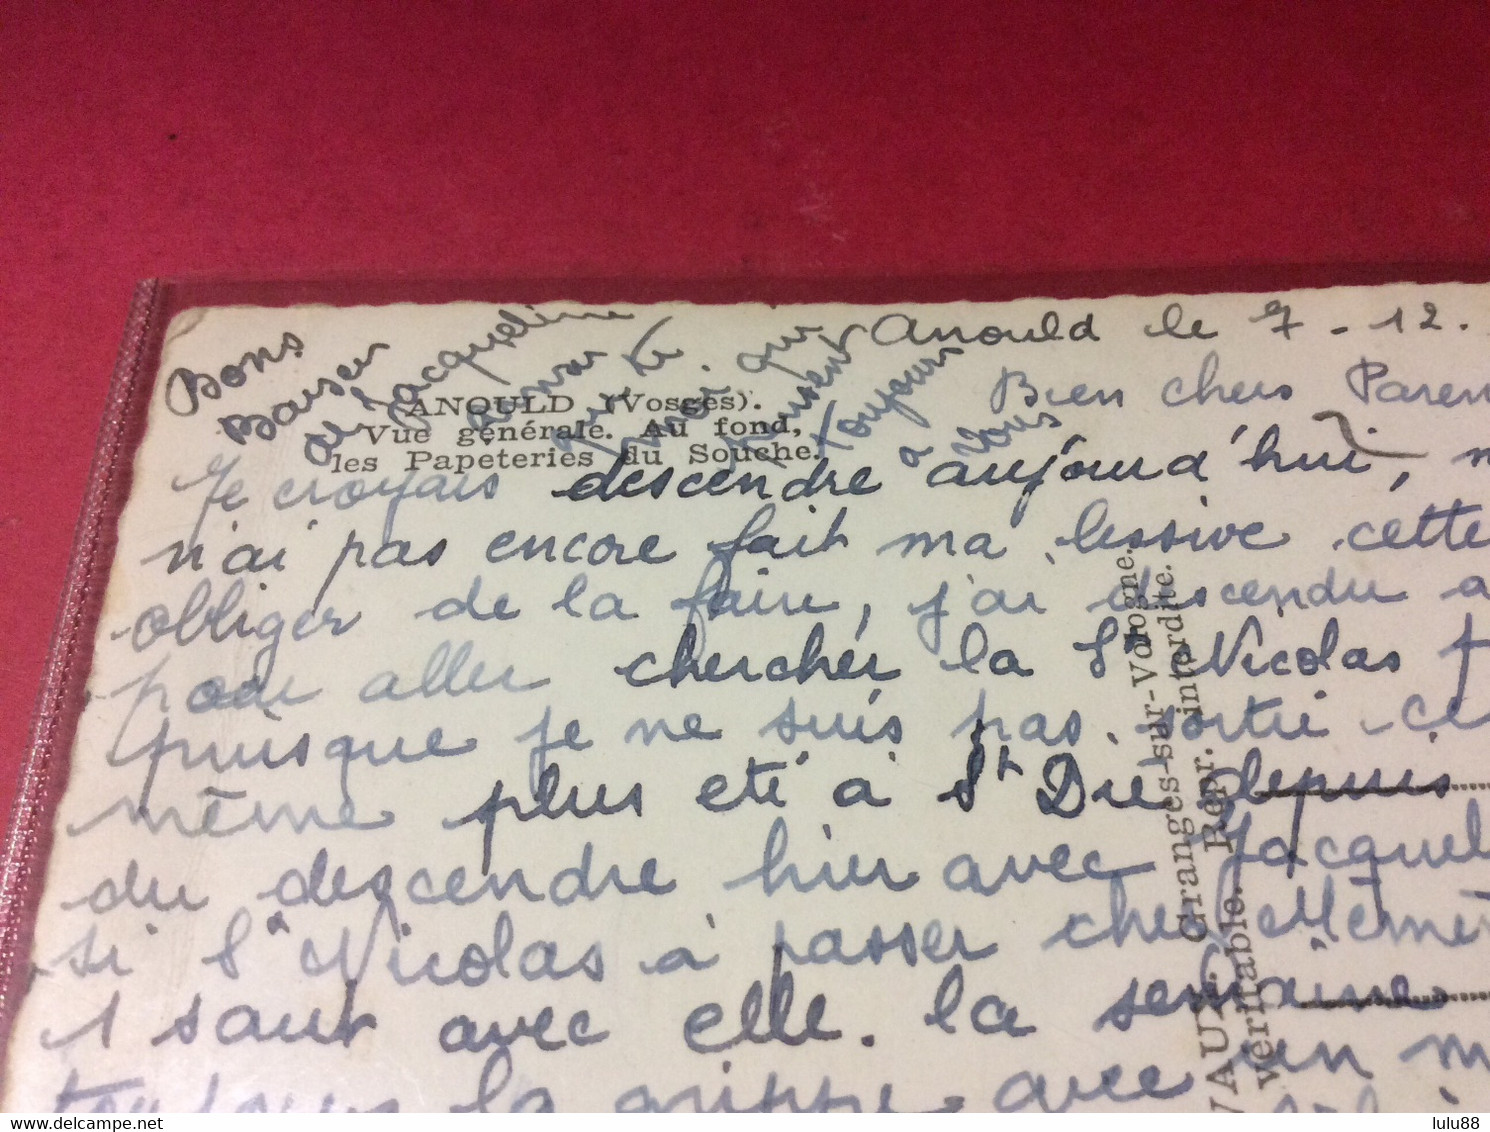 Bons
Baiser
de Jacqueline
qui
toujours
à vous
ANOULD (Vosges).
Vue générale. Au fond,
les Papeteries du Souche.
Anould le 7-12.
Bien chers Paren
Je croyais descendre aujourd'hui,
n'ai pas encore fait ma lessive cette
obliger de la faire, j'ai descendu a
pour aller chercher la St Nicolas
puisque je ne suis pas sortie ce
même plus eté à St Dié depuis
du descendre hier avec Jacquel
si St Nicolas à passer chez Mémè
1 saur avec elle. la semaine
toujours la grippe avec un m
Granges-sur-Vologne.
Repr. interdite.
véritable.
delcampe.net
lulu88